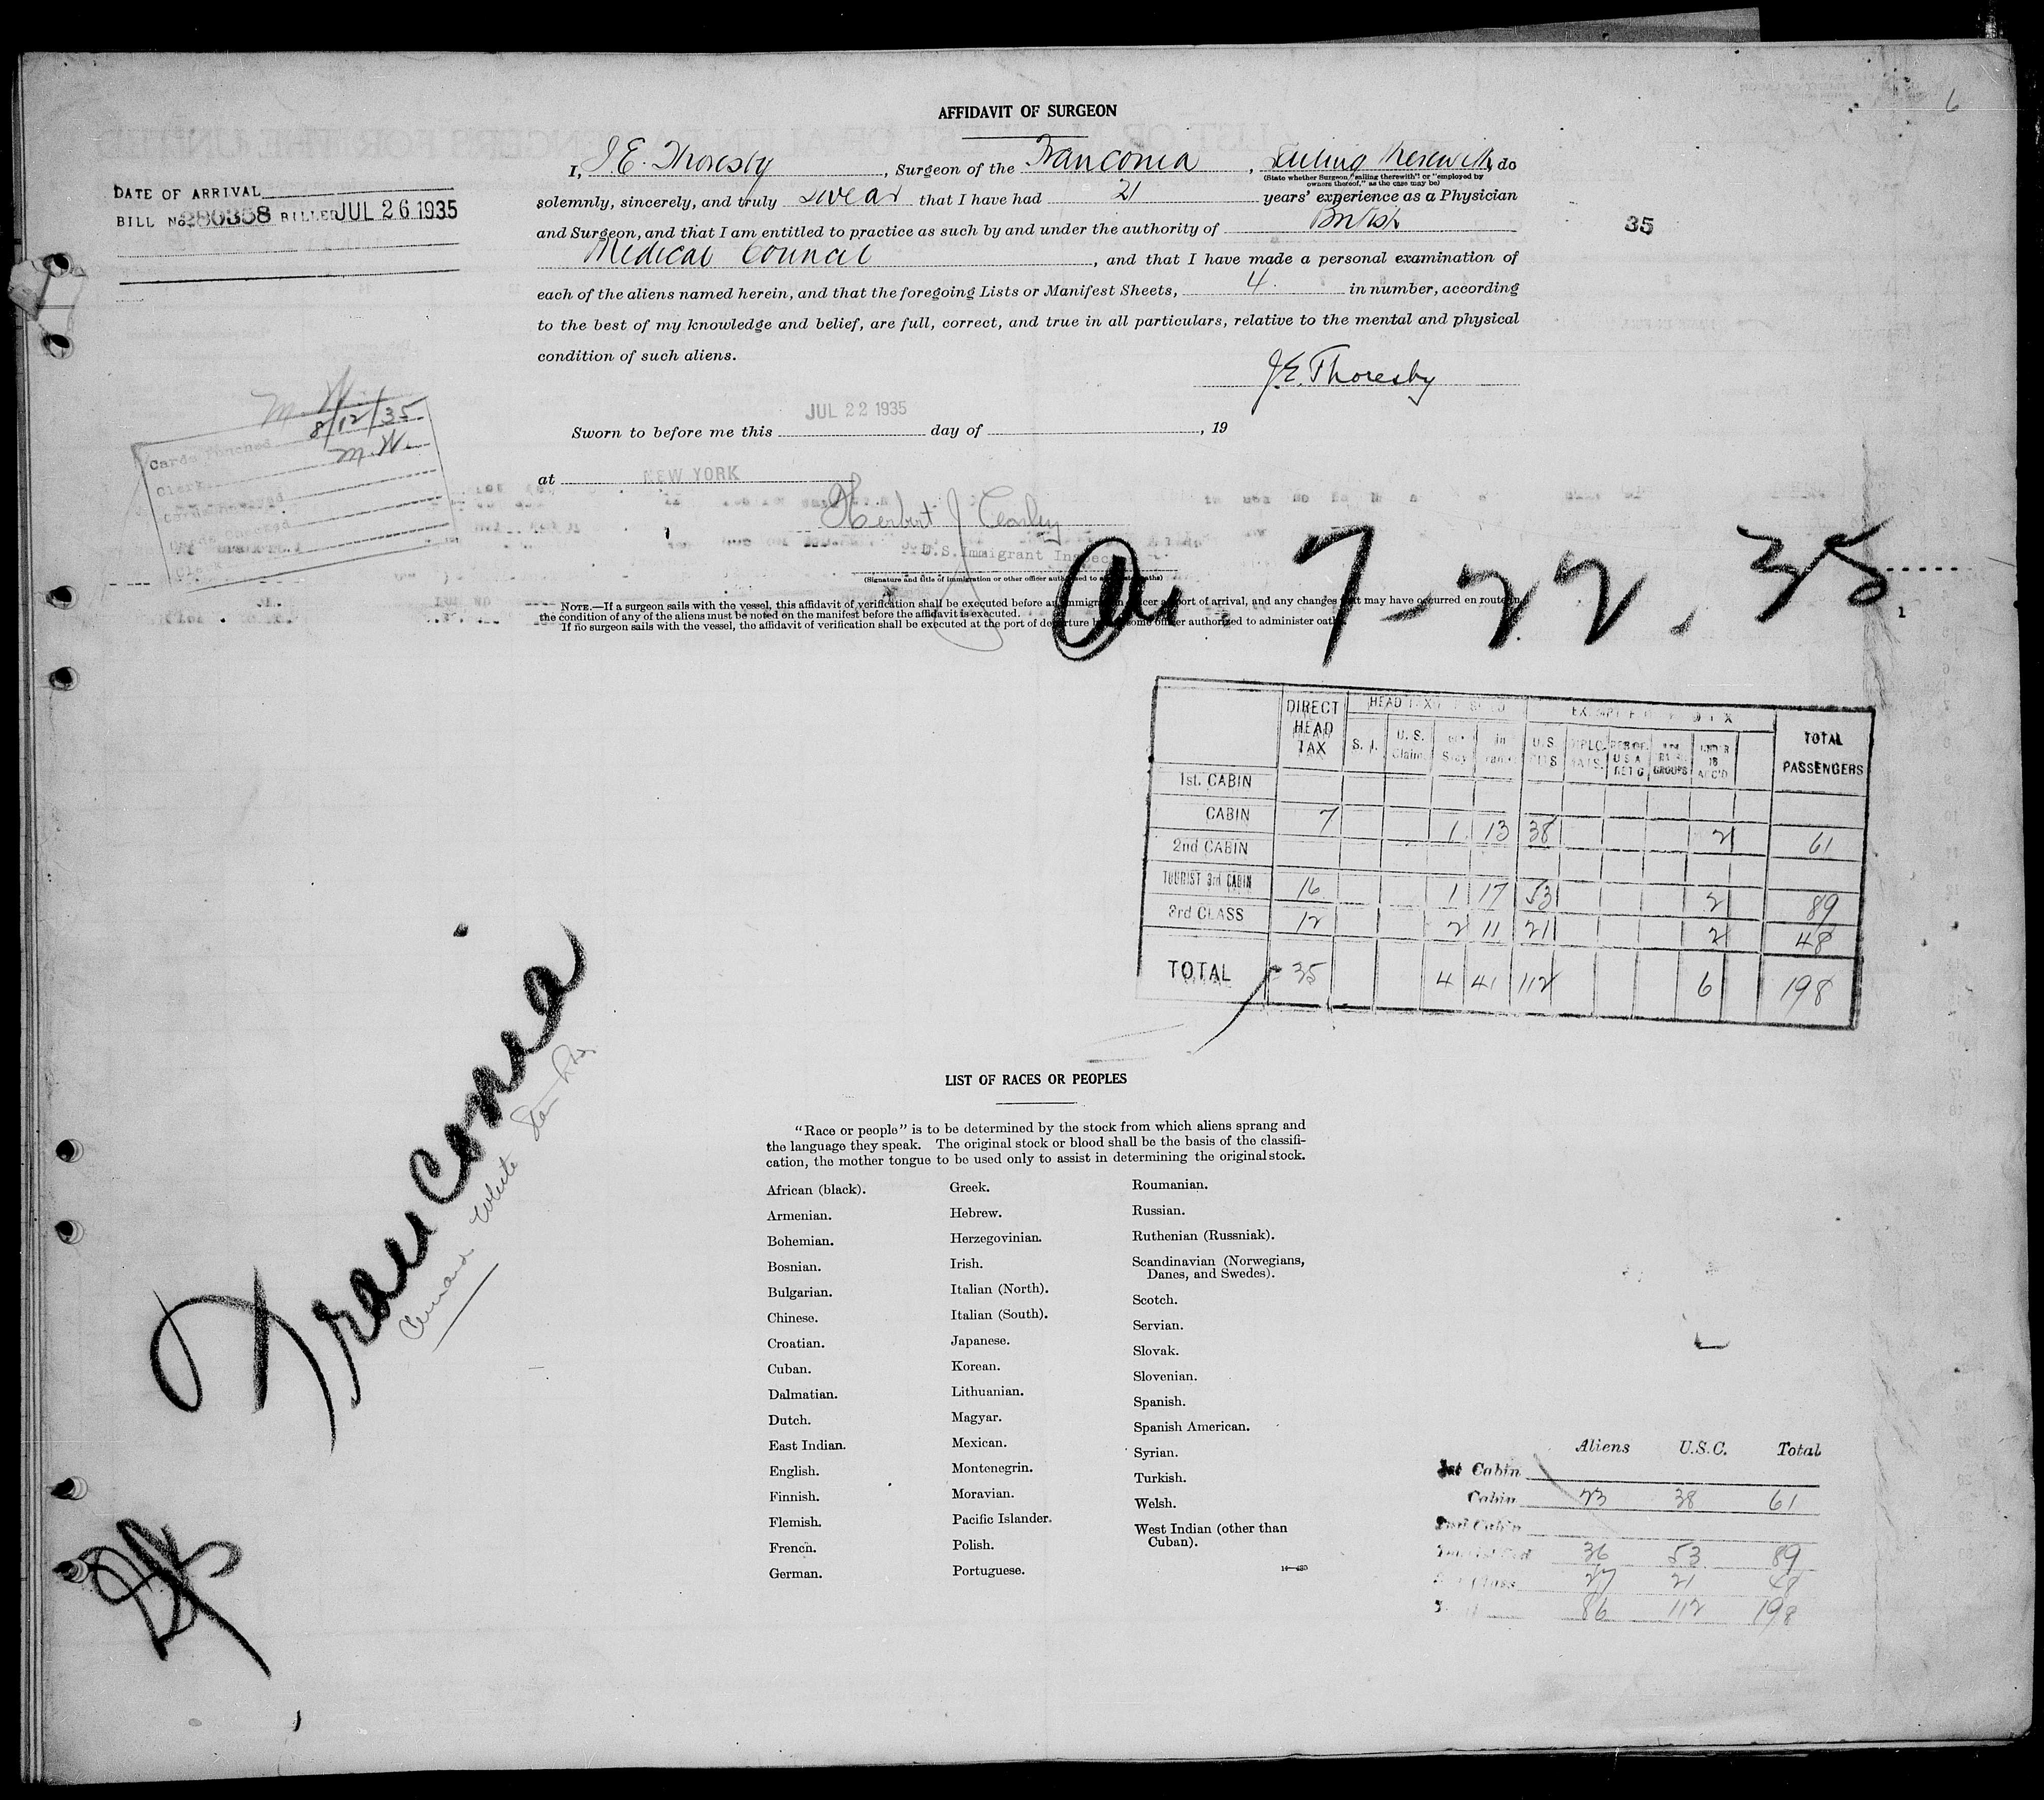 6
AFFIDAVIT OF SURGEON
I, J.E. Thoresby, Surgeon of the Franconia, Sailing therewith, do
(State whether Surgeon "sailing therewith" or "employed by owners thereof," as the case may be)
solemnly, sincerely, and truly swear that I have had 21 years' experience as a Physician
and Surgeon, and that I am entitled to practice as such by and under the authority of British
Medical Council, and that I have made a personal examination of
each of the aliens named herein, and that the foregoing Lists or Manifest Sheets, 4. in number, according
to the best of my knowledge and belief, are full, correct, and true in all particulars, relative to the mental and physical
condition of such aliens.
J.E. Thoresby
DATE OF ARRIVAL
BILL No. 280358 BILLED JUL 26 1935
35
Sworn to before me this JUL 22 1935 day of , 19
at NEW YORK
Herbert J
U.S. Immigrant Inspector
(Signature and title of immigration or other officer authorized to administer oaths)
M. W.
Cards Punched 8/12/35
Clerk M. W.
NOTE.—If a surgeon sails with the vessel, this affidavit of verification shall be executed before an immigration officer at port of arrival, and any changes that may have occurred en route in
the condition of any of the aliens must be noted on the manifest before the affidavit is executed.
If no surgeon sails with the vessel, the affidavit of verification shall be executed at the port of departure before some officer authorized to administer oaths.
7-22.35
1
DIRECT HEAD TAX
S. I. U.S. Claim U.S. CITS DIPLOMATS UNDER 16 ACC'D
TOTAL PASSENGERS
1st. CABIN
CABIN 7 1 13 38 2 61
2nd CABIN
TOURIST 3rd CABIN 16 1 17 53 2 89
3rd CLASS 12 2 11 21 2 48
TOTAL 35 4 41 112 6 198
Franconia
Cunard White Star
LIST OF RACES OR PEOPLES
"Race or people" is to be determined by the stock from which aliens sprang and
the language they speak. The original stock or blood shall be the basis of the classifi-
cation, the mother tongue to be used only to assist in determining the original stock.
African (black).
Armenian.
Bohemian.
Bosnian.
Bulgarian.
Chinese.
Croatian.
Cuban.
Dalmatian.
Dutch.
East Indian.
English.
Finnish.
Flemish.
French.
German.
Greek.
Hebrew.
Herzegovinian.
Irish.
Italian (North).
Italian (South).
Japanese.
Korean.
Lithuanian.
Magyar.
Mexican.
Montenegrin.
Moravian.
Pacific Islander.
Polish.
Portuguese.
Roumanian.
Russian.
Ruthenian (Russniak).
Scandinavian (Norwegians,
Danes, and Swedes).
Scotch.
Servian.
Slovak.
Slovenian.
Spanish.
Spanish American.
Syrian.
Turkish.
Welsh.
West Indian (other than
Cuban).
Aliens U.S.C. Total
1st Cabin
Cabin 23 38 61
2nd Cabin
36 53 89
Class 27 21 48
86 112 198